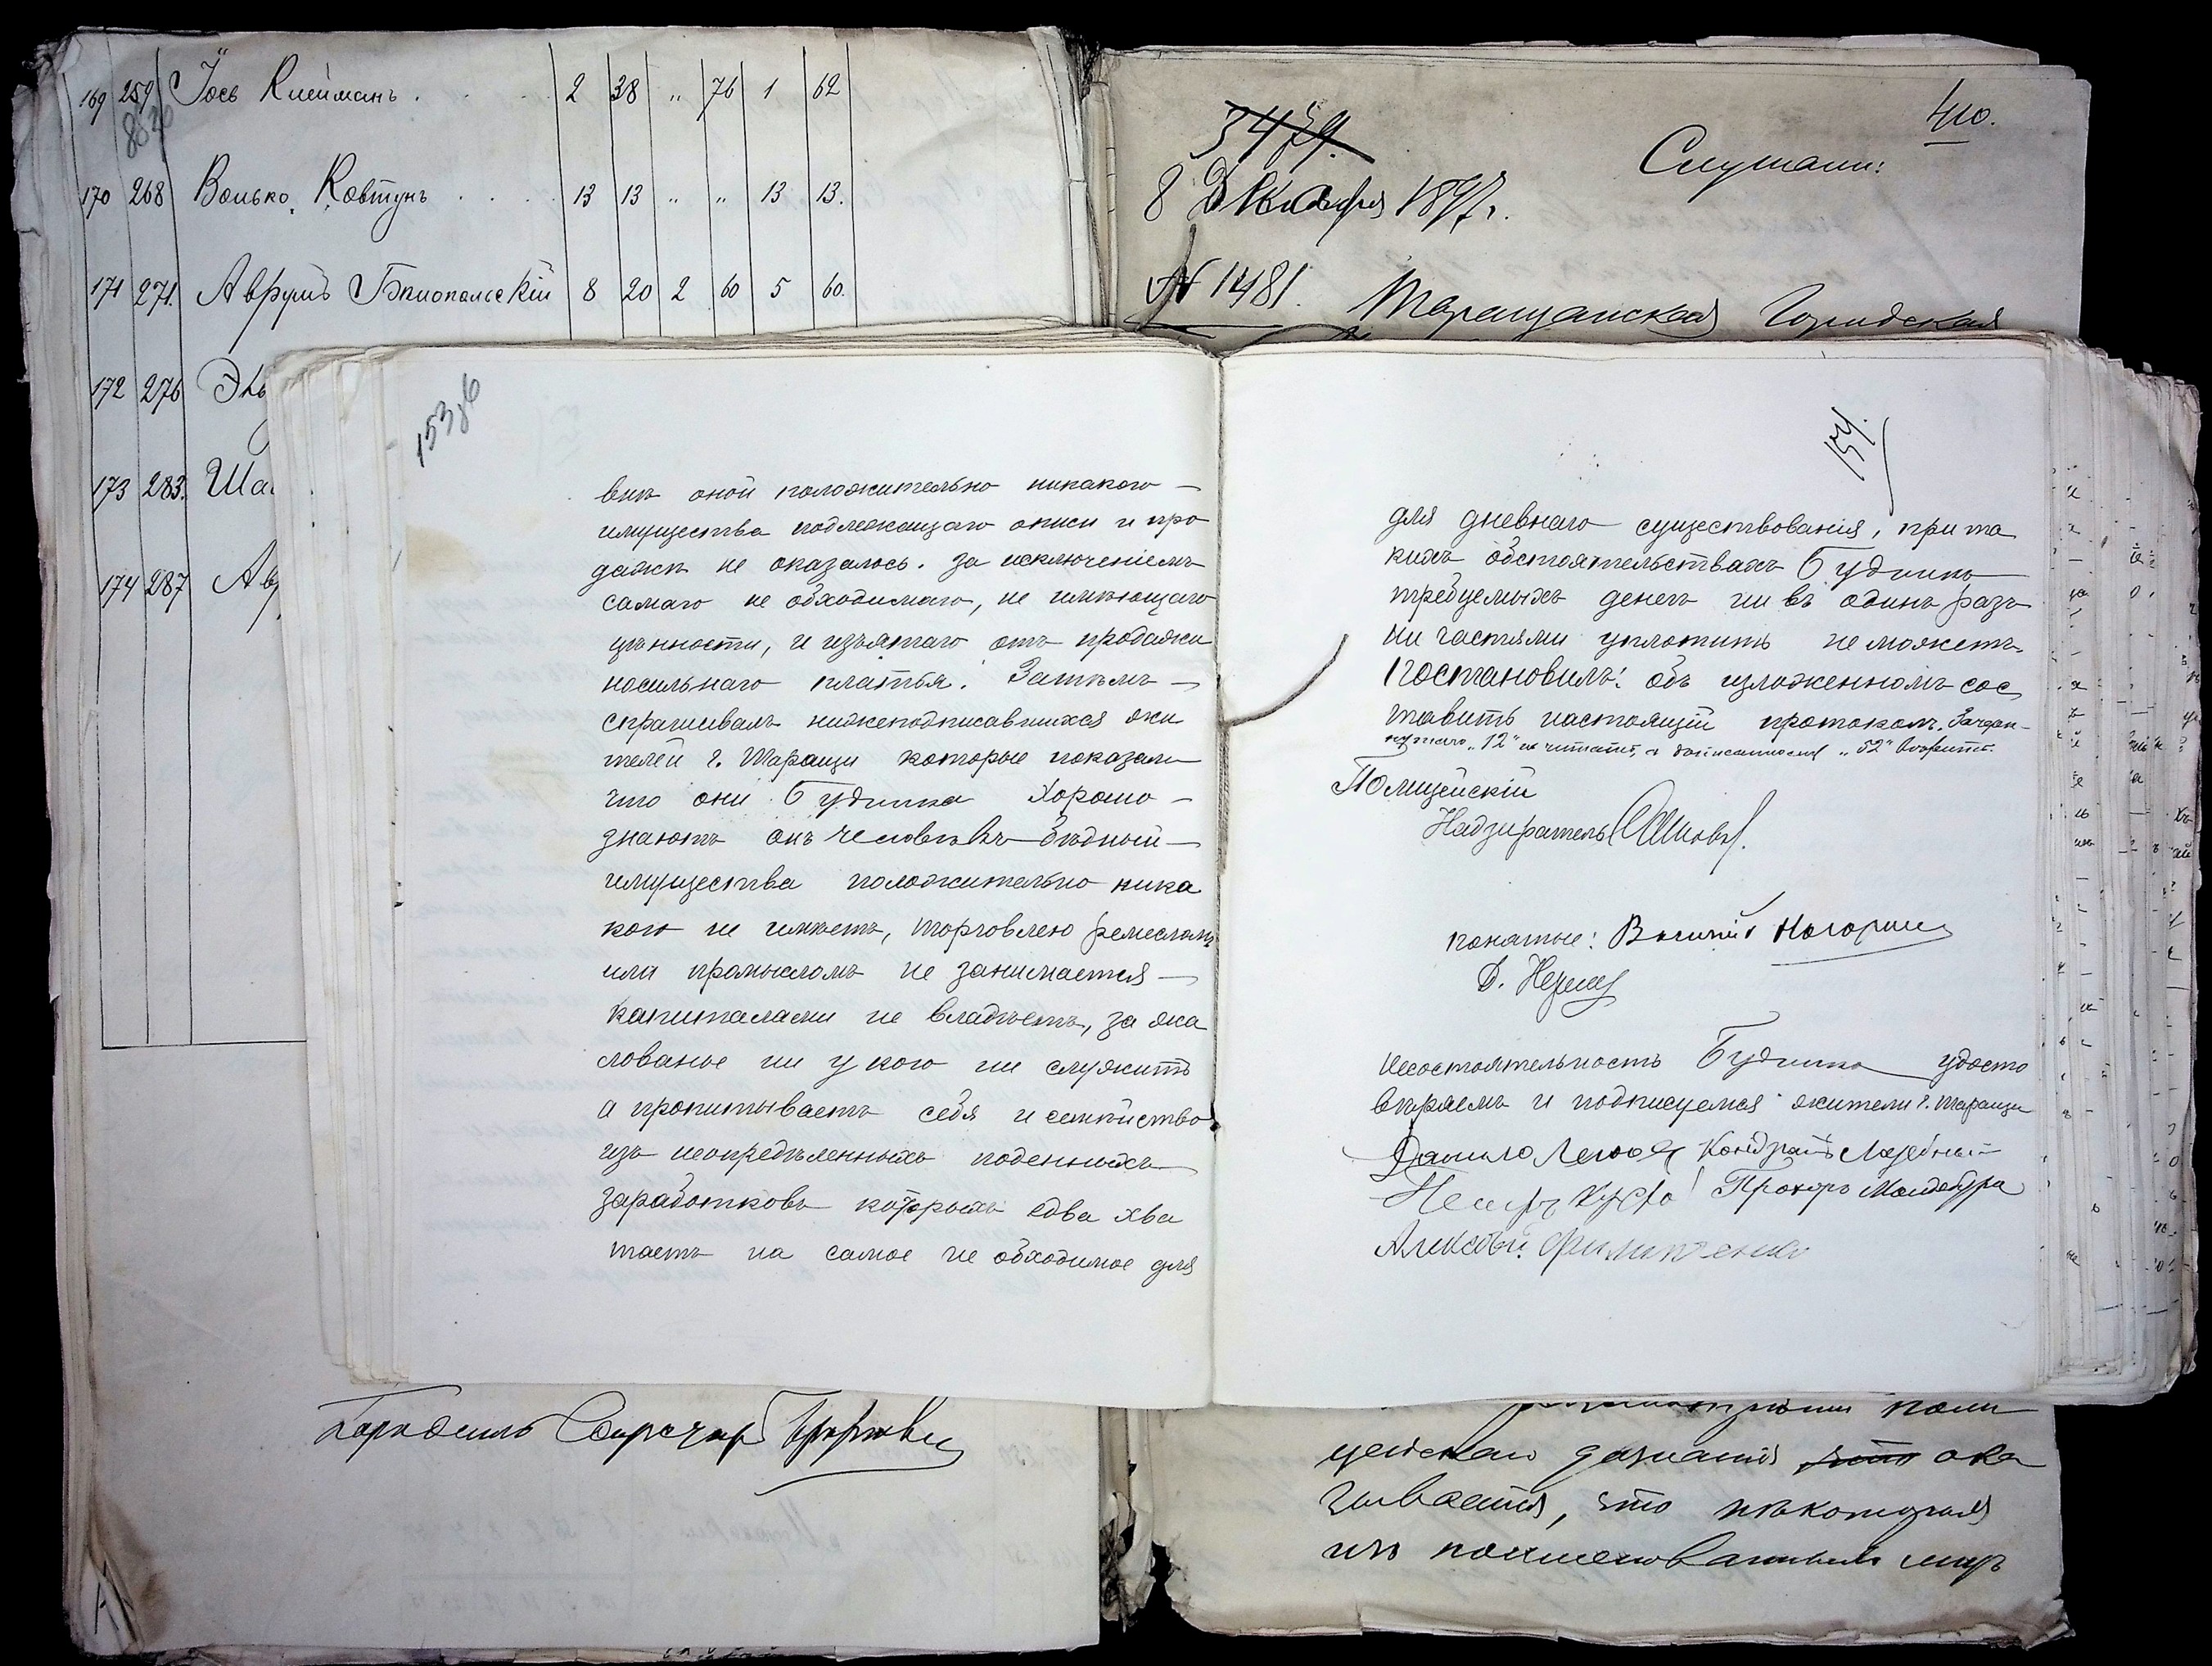 169 259 Іось Клейманъ . . . 2 38 " 76 1 62
170 268 Волько Ковтунъ . . . . 13 13 " " 13 13.
171 271. Аврумъ Бялопольскій 8 20 2 60 5 60.
172 276
173 283.
174 287
410.
3479.
Слушали:
8 Декабря 1897 г.
№ 1481.
Таращанская Городская
153об
внѣ оной положительно никакого —
имущества подлежащаго описи и про
дажи не оказалось. за исключеніемъ
самаго не обходимаго, не имѣющаго
цѣнности, и изъятаго отъ продажи
носильнаго платья. Затѣмъ —
спрашивалъ нижеподписавшихся жи
телей г. Таращи которые показали
что они Будника хорошо —
знаютъ онъ человѣкъ бѣдный —
имущества положительно ника
кого не имѣетъ, торговлею ремесломъ
или промысломъ не занимается —
капиталами не владѣетъ, за жа
лованье ни у кого не служитъ
а пропитываетъ себя и семейство
изъ неопредѣленныхъ поденныхъ
заработковъ которыхъ едва хва
таетъ на самое не обходимое для
154.
для дневнаго существованія, при та
кихъ обстоятельствахъ Будникъ
требуемыхъ денегъ ни въ одинъ разъ
ни частями уплатить не можетъ
Постановилъ: объ изложенномъ сос
тавить настоящій протоколъ. Зачерк-
нутаго „12" не читать, а „52" вѣрить.
Полицейскій
Надзиратель
понятые:
Д.
Несостоятельность Будника удосто
вѣряемъ и подписуемся жители г. Таращи
Данило Кондратъ
Прокоръ Мандебура
Алексѣй Филипченко
поли
цейскаго дознанія что ока
зывается, что нѣкоторыя
изъ поименованныхъ лицъ